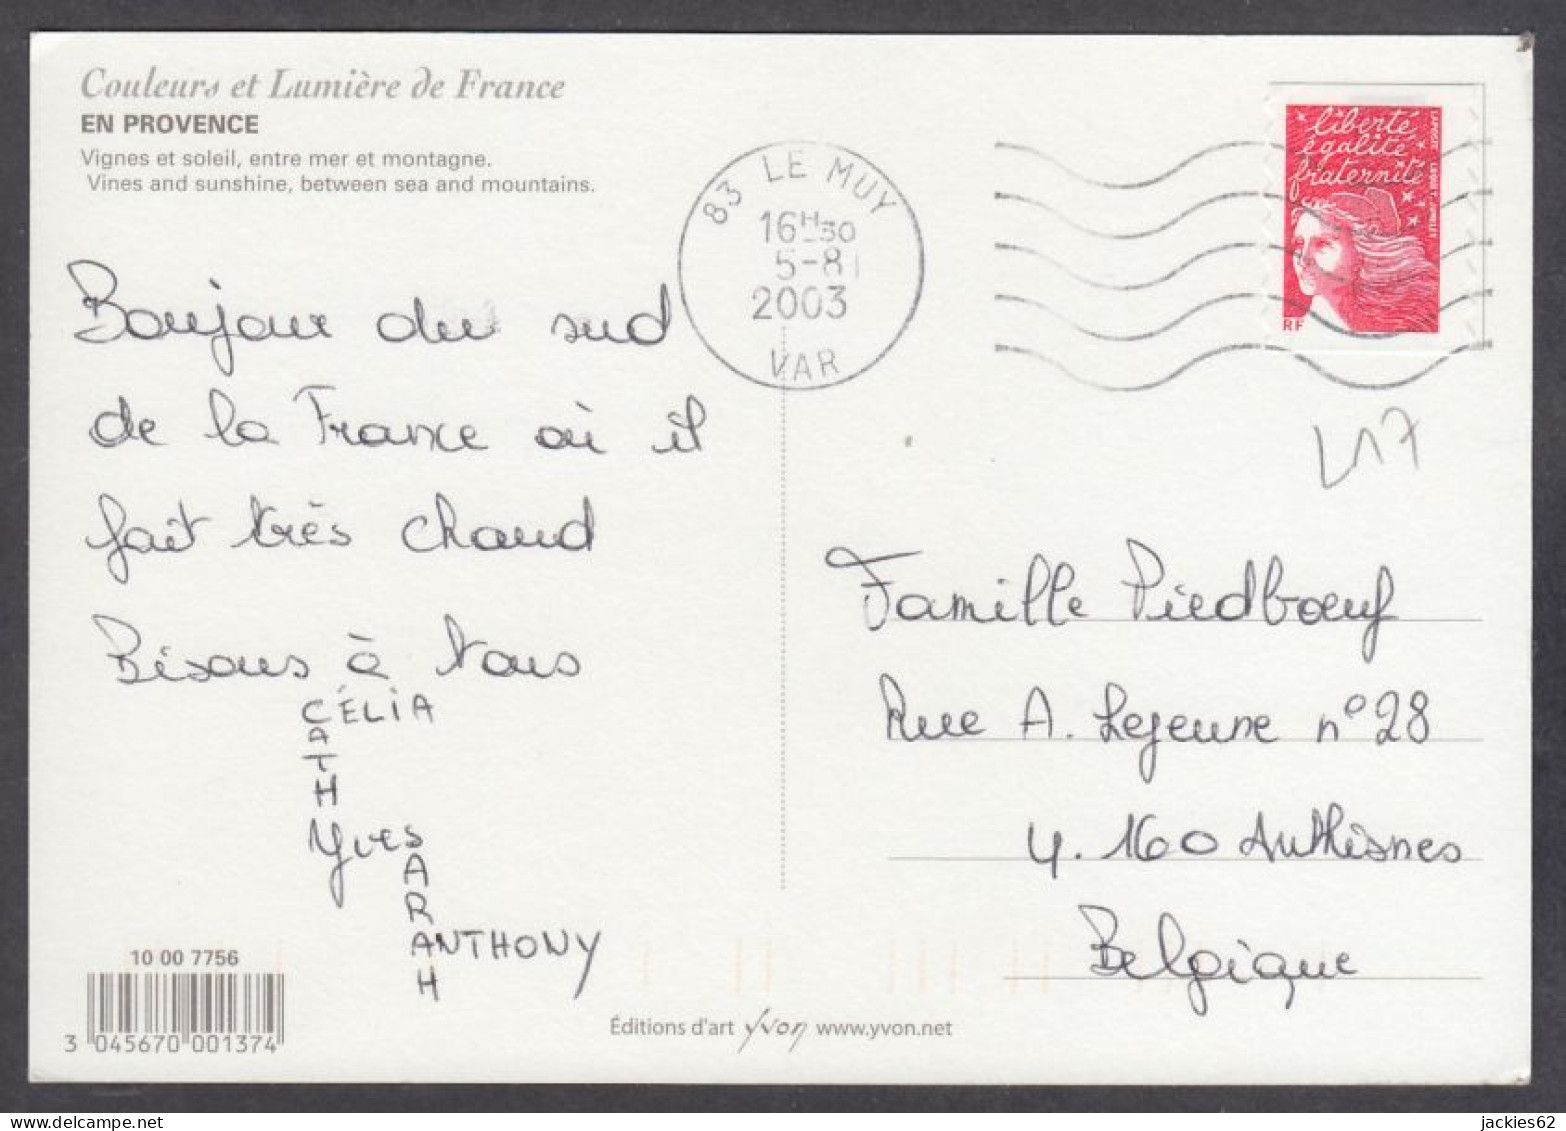 Couleurs et Lumière de France
EN PROVENCE
Vignes et soleil, entre mer et montagne.
Vines and sunshine, between sea and mountains.
83 LE MUY
16H30
5-8
2003
VAR
liberté
égalité
fraternité
RF
L17
Bonjour du sud
de la France où il
fait très chaud
Bisous à tous
CÉLIA
CATHY
Yves
SARAH
ANTHONY
Famille Piedbœuf
Rue A. Lejeune n°28
4.160 Anthisnes
Belgique
10 00 7756
3 045670 001374
Éditions d'art yvon www.yvon.net
jackies62